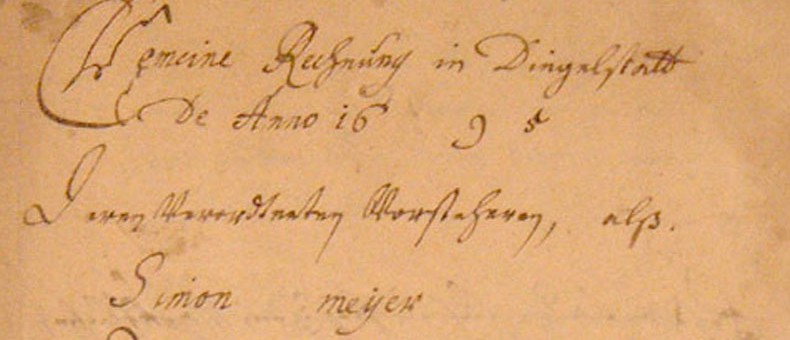 Gemeine Rechnung in Dingelstatt
De Anno 16 9 5
Deren Verordtneten Vorsteheren, alß.
Simon meyer